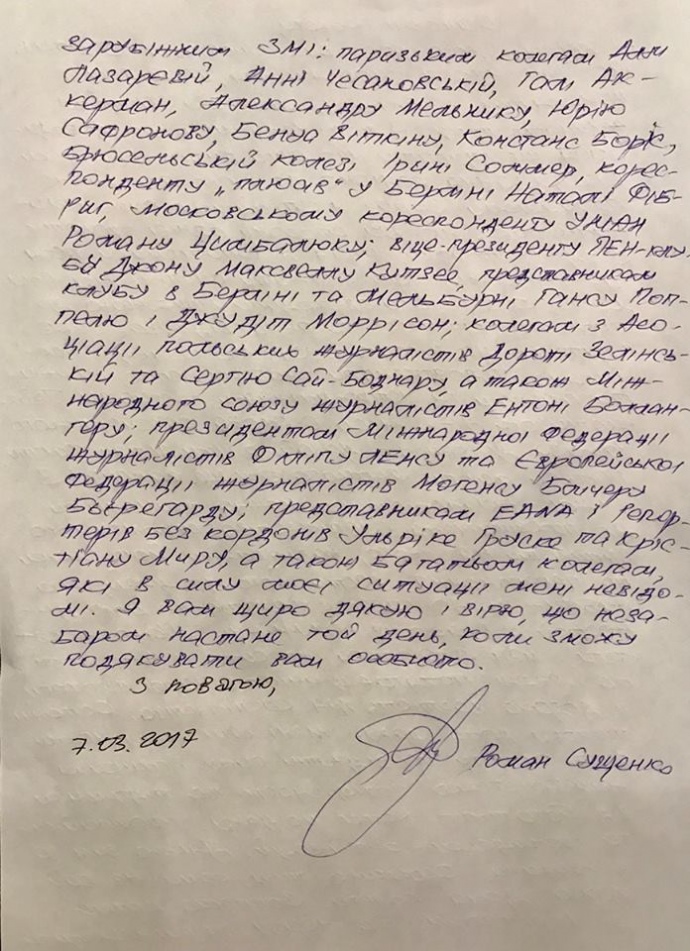 зарубіжним ЗМІ: паризьким колегам Анні
Лазарєвій, Анні Чесановській, Галі Ак-
керман, Александру Мельнику, Юрію
Сафронову, Бенуа Віткіну, Констанс Борік,
брюсельській колезі Ірині Соммер, корес-
понденту „плюсів" у Берліні Наталі Фіб-
риг, московському кореспонденту УНІАН
Роману Цимбалюку; віце-президенту ПЕН-клу-
бу Джону Максвеллу Кутзее, представникам
клубу в Берліні та Мельбурні Гансу Поп-
пелю і Джудіт Моррісон; колегам з Асо-
ціації польських журналістів Дороті Зелінсь-
кій та Сергію Сай-Боднару, а також Між-
народного союзу журналістів Ентоні Беллан-
геру; президентам Міжнародної Федерації
журналістів Філіпу Ленсу та Європейської
Федерації журналістів Могенсу Блічеру
Б'єрегарду; представникам EANA і Репор-
терів без кордонів Ульріке Груске та Кріс-
тіану Міру, а також багатьом колегам,
які в силу моєї ситуації мені невідо-
мі. Я вам щиро дякую і вірю, що неза-
баром настане той день, коли зможу
подякувати вам особисто.
З повагою,
7.03.2017
Роман Сущенко